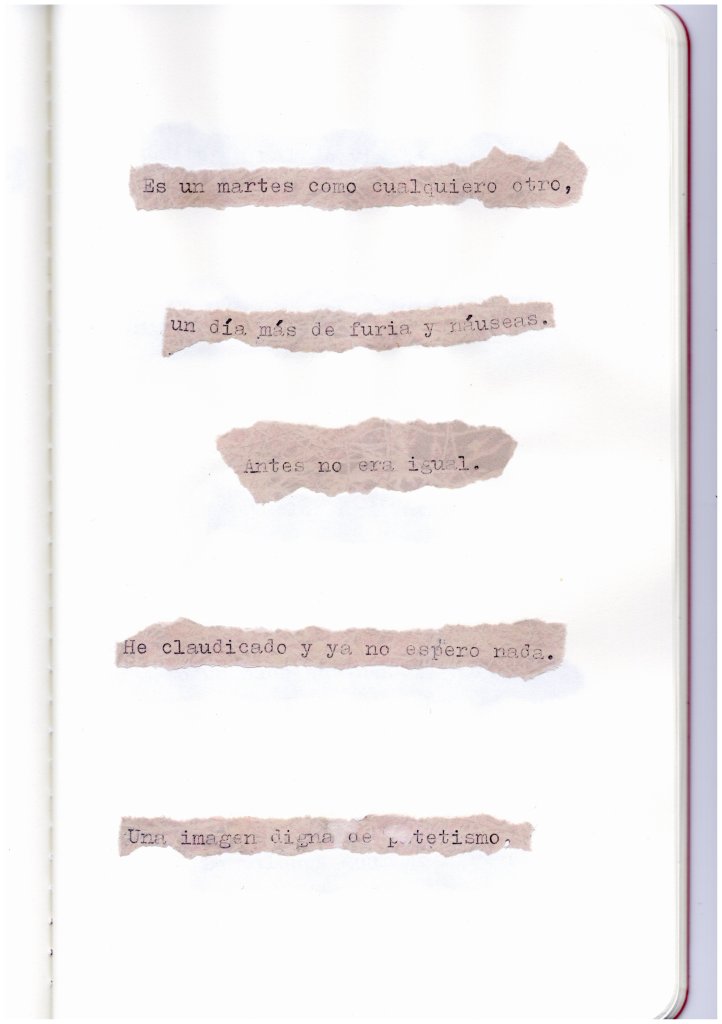 Es un martes como cualquiero otro,
un día más de furia y náuseas.
Antes no era igual.
He claudicado y ya no espero nada.
Una imagen digna de patetismo,